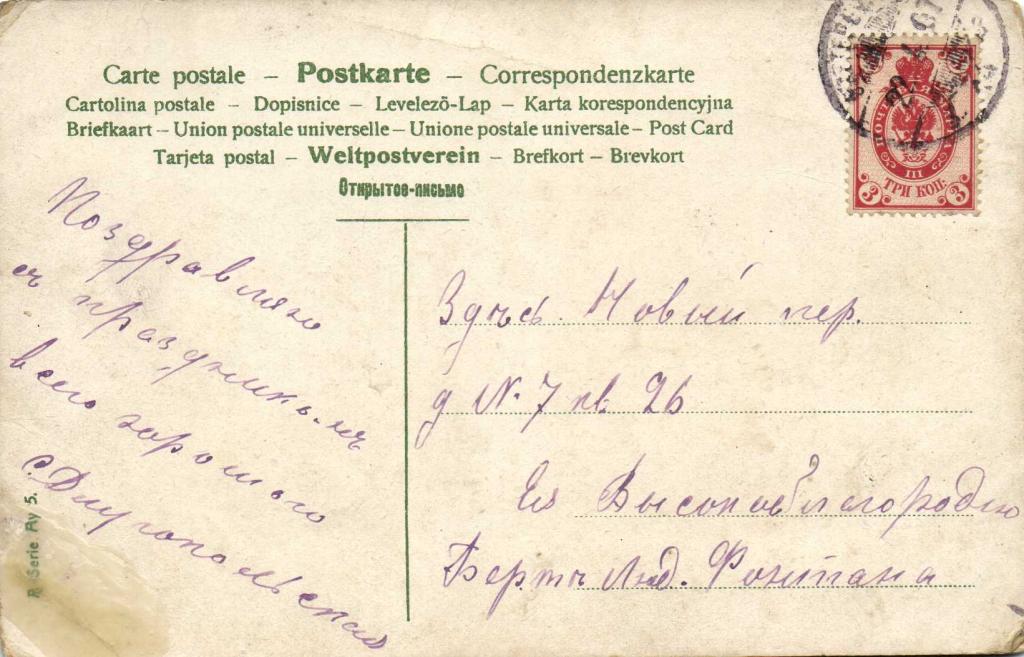 Carte postale – Postkarte – Correspondenzkarte
Cartolina postale – Dopisnice – Levelező-Lap – Karta korespondencyjna
Briefkaart – Union postale universelle – Unione postale universale – Post Card
Tarjeta postal – Weltpostverein – Brefkort – Brevkort
Открытое-письмо
Поздравляю
съ праздникомъ
всего хорошаго
С. Длугопольская
Здѣсь. Новый пер.
д № 7 кв. 26
Ея Высокоблагородію
Бертѣ Люд. Фонтана
ПОЧТОВАЯ МАРКА
III
3 ТРИ КОП. 3
Serie Ay 5.